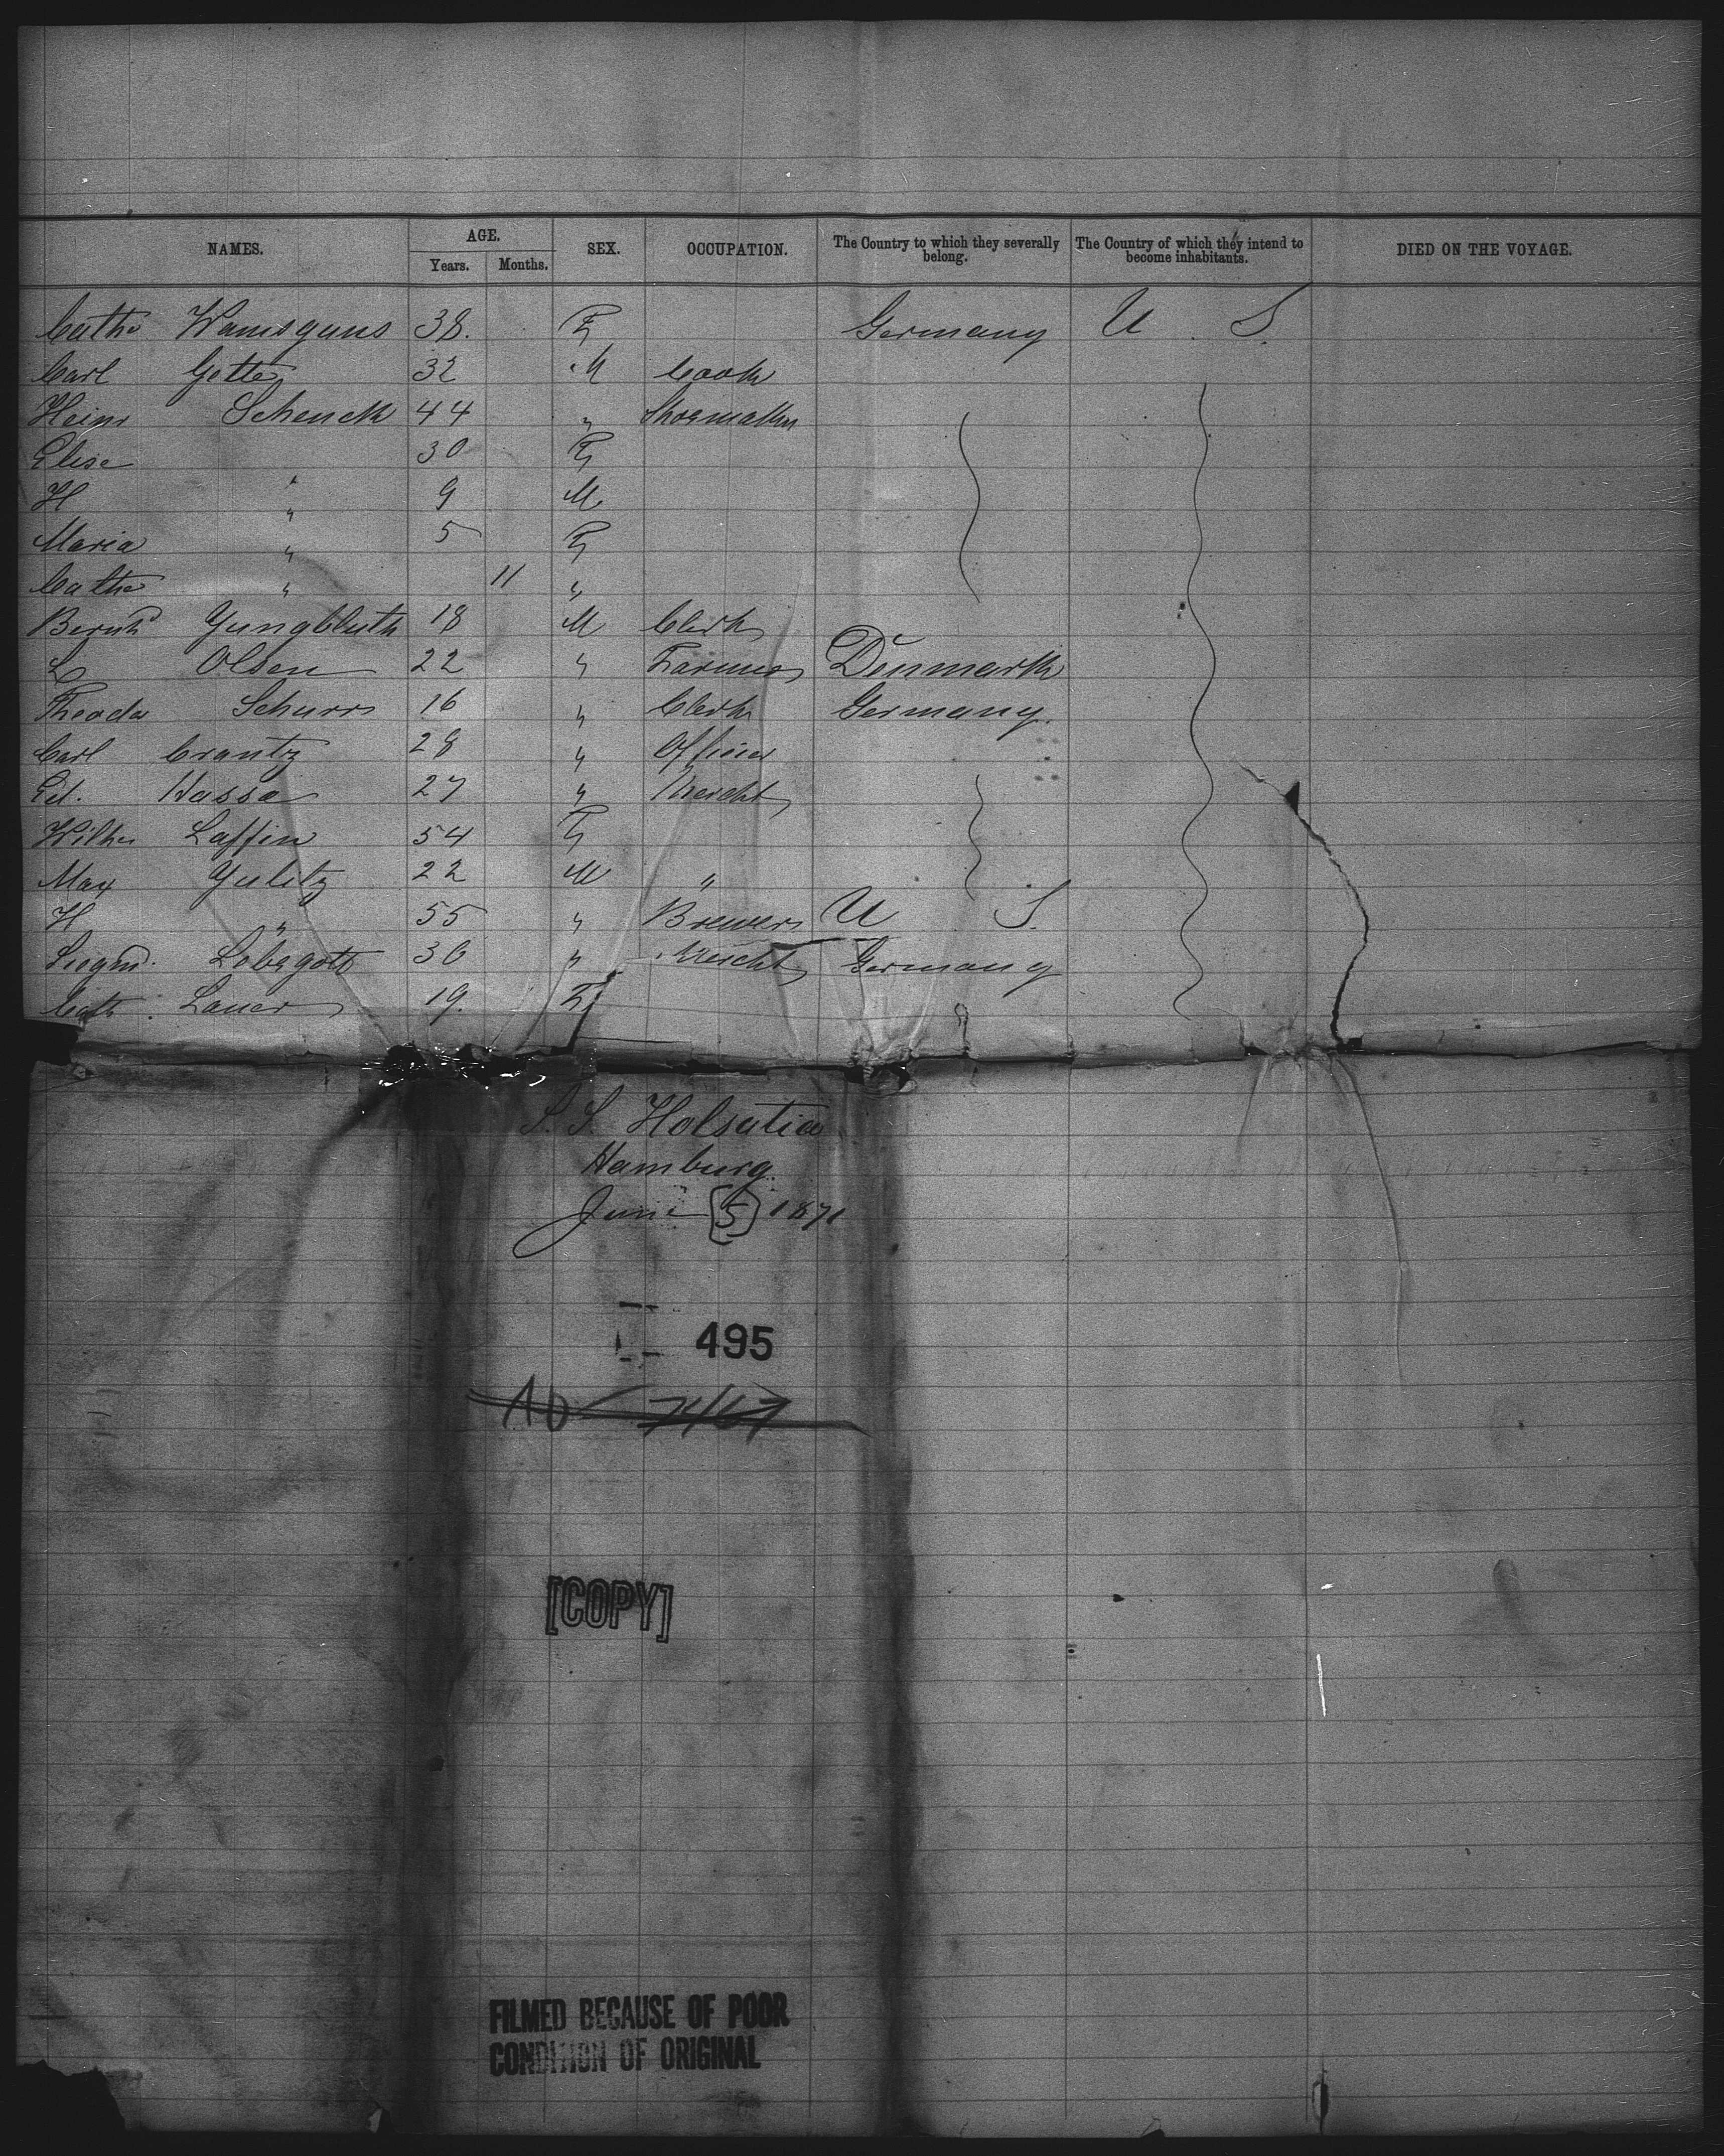 NAMES. AGE. SEX. OCCUPATION. The Country to which they severally belong. The Country of which they intend to become inhabitants. DIED ON THE VOYAGE.
Years. Months.
Cathe Wamsgans 38. F Germany U S.
Carl Gette 32 M Cook
Heinr Schenck 44 " Shoemaker
Elise " 30 F
H " 9 M
Maria " 5 F
Cathe " 11 "
Bernhd Yungbluth 18 M Clerk
L Olsen 22 " Farmer Denmark
Theodor Schurr 16 " Clerk Germany.
Carl Crantz 28 " Officer
Ed. Hassa 27 " Mercht
Wilhe Laffin 54 F
Max Yulitz 22 M "
H " 55 " Brewer U S.
Siegmd. Lobegott 36 " Mercht Germany
Cath. Lauer 19. F
S. S. Holsatia
Hamburg
June [5] 1871
495
[COPY]
FILMED BECAUSE OF POOR
CONDITION OF ORIGINAL